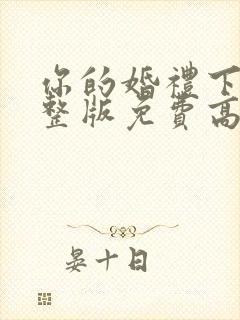 你的婚禮下
整版免費高
晏十日